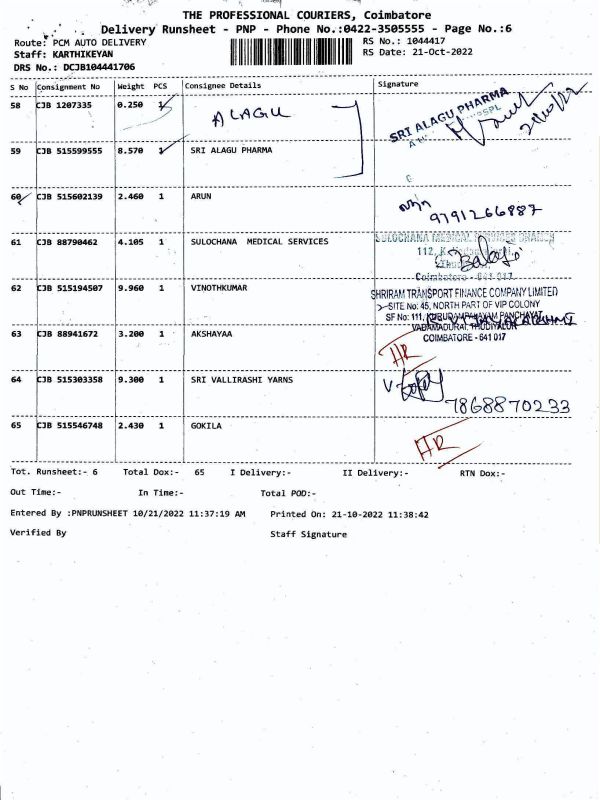 THE PROFESSIONAL COURIERS, Coimbatore
Delivery Runsheet - PNP - Phone No.:0422-3505555 - Page No.:6
Route: PCM AUTO DELIVERY
RS No.: 1044417
Staff: KARTHIKEYAN
RS Date: 21-Oct-2022
DRS No.: DCJB104441706
S No Consignment No Weight PCS Consignee Details Signature
58 CJB 1207335 0.250 1 ALAGU
SRI ALAGU PHARMA
59 CJB 515599555 8.570 1 SRI ALAGU PHARMA
60 CJB 515602139 2.460 1 ARUN
9791266887
61 CJB 88790462 4.105 1 SULOCHANA MEDICAL SERVICES
SULOCHANA MEDICAL
112,
Balaji
Coimbatore - 641 017
62 CJB 515194507 9.960 1 VINOTHKUMAR
SHRIRAM TRANSPORT FINANCE COMPANY LIMITED
SITE No: 45, NORTH PART OF VIP COLONY
SF No: 111, KURUDAMPALAYAM PANCHAYAT
VADAMADURAI, THUDIYALUR
COIMBATORE - 641 017
63 CJB 88941672 3.200 1 AKSHAYAA
HR
64 CJB 515303358 9.300 1 SRI VALLIRASHI YARNS
7868870233
65 CJB 515546748 2.430 1 GOKILA
HR
Tot. Runsheet:- 6 Total Dox:- 65 I Delivery:- II Delivery:- RTN Dox:-
Out Time:- In Time:- Total POD:-
Entered By :PNPRUNSHEET 10/21/2022 11:37:19 AM Printed On: 21-10-2022 11:38:42
Verified By Staff Signature